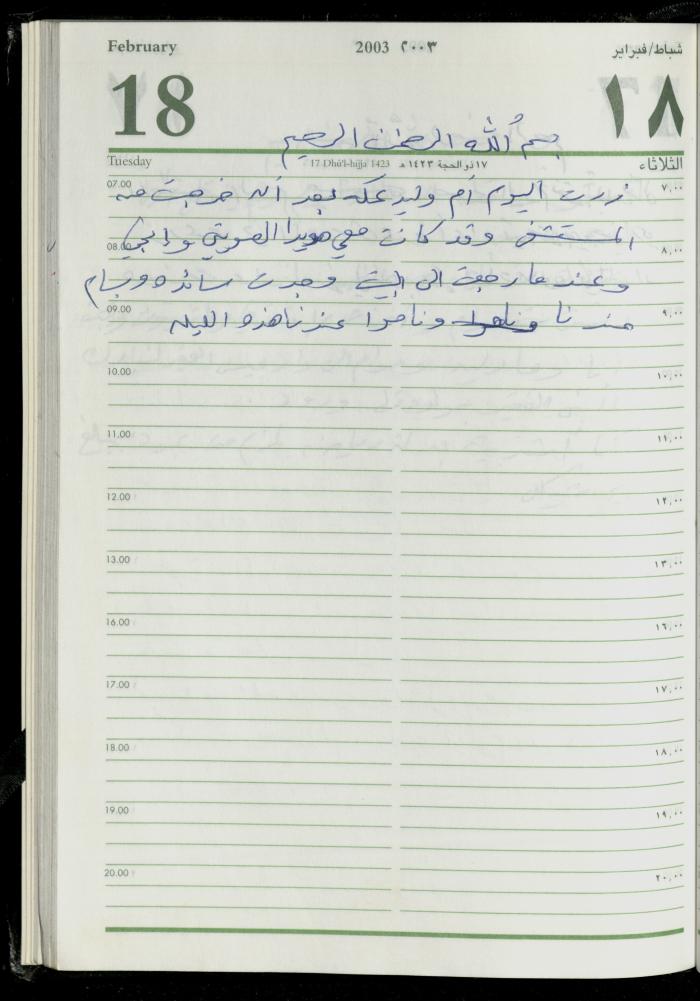 February 2003 ٢٠٠٣ شباط/فبراير
18 ١٨
بسم الله الرحمن الرحيم
Tuesday 17 Dhú'l-hijja 1423 ١٧ ذو الحجة ١٤٢٣ هـ الثلاثاء
07.00 ٧,٠٠
زرت اليوم أم وليد عكه بعد أن خرجت من
المستشفى وقد كانت معي هويدا
08.00 ٨,٠٠
وعندما رجعت الى البيت وجدت سائده ووسام
09.00 ٩,٠٠
عندنا وناموا وناموا عندنا هذه الليله
10.00 ١٠,٠٠
11.00 ١١,٠٠
12.00 ١٢,٠٠
13.00 ١٣,٠٠
16.00 ١٦,٠٠
17.00 ١٧,٠٠
18.00 ١٨,٠٠
19.00 ١٩,٠٠
20.00 ٢٠,٠٠